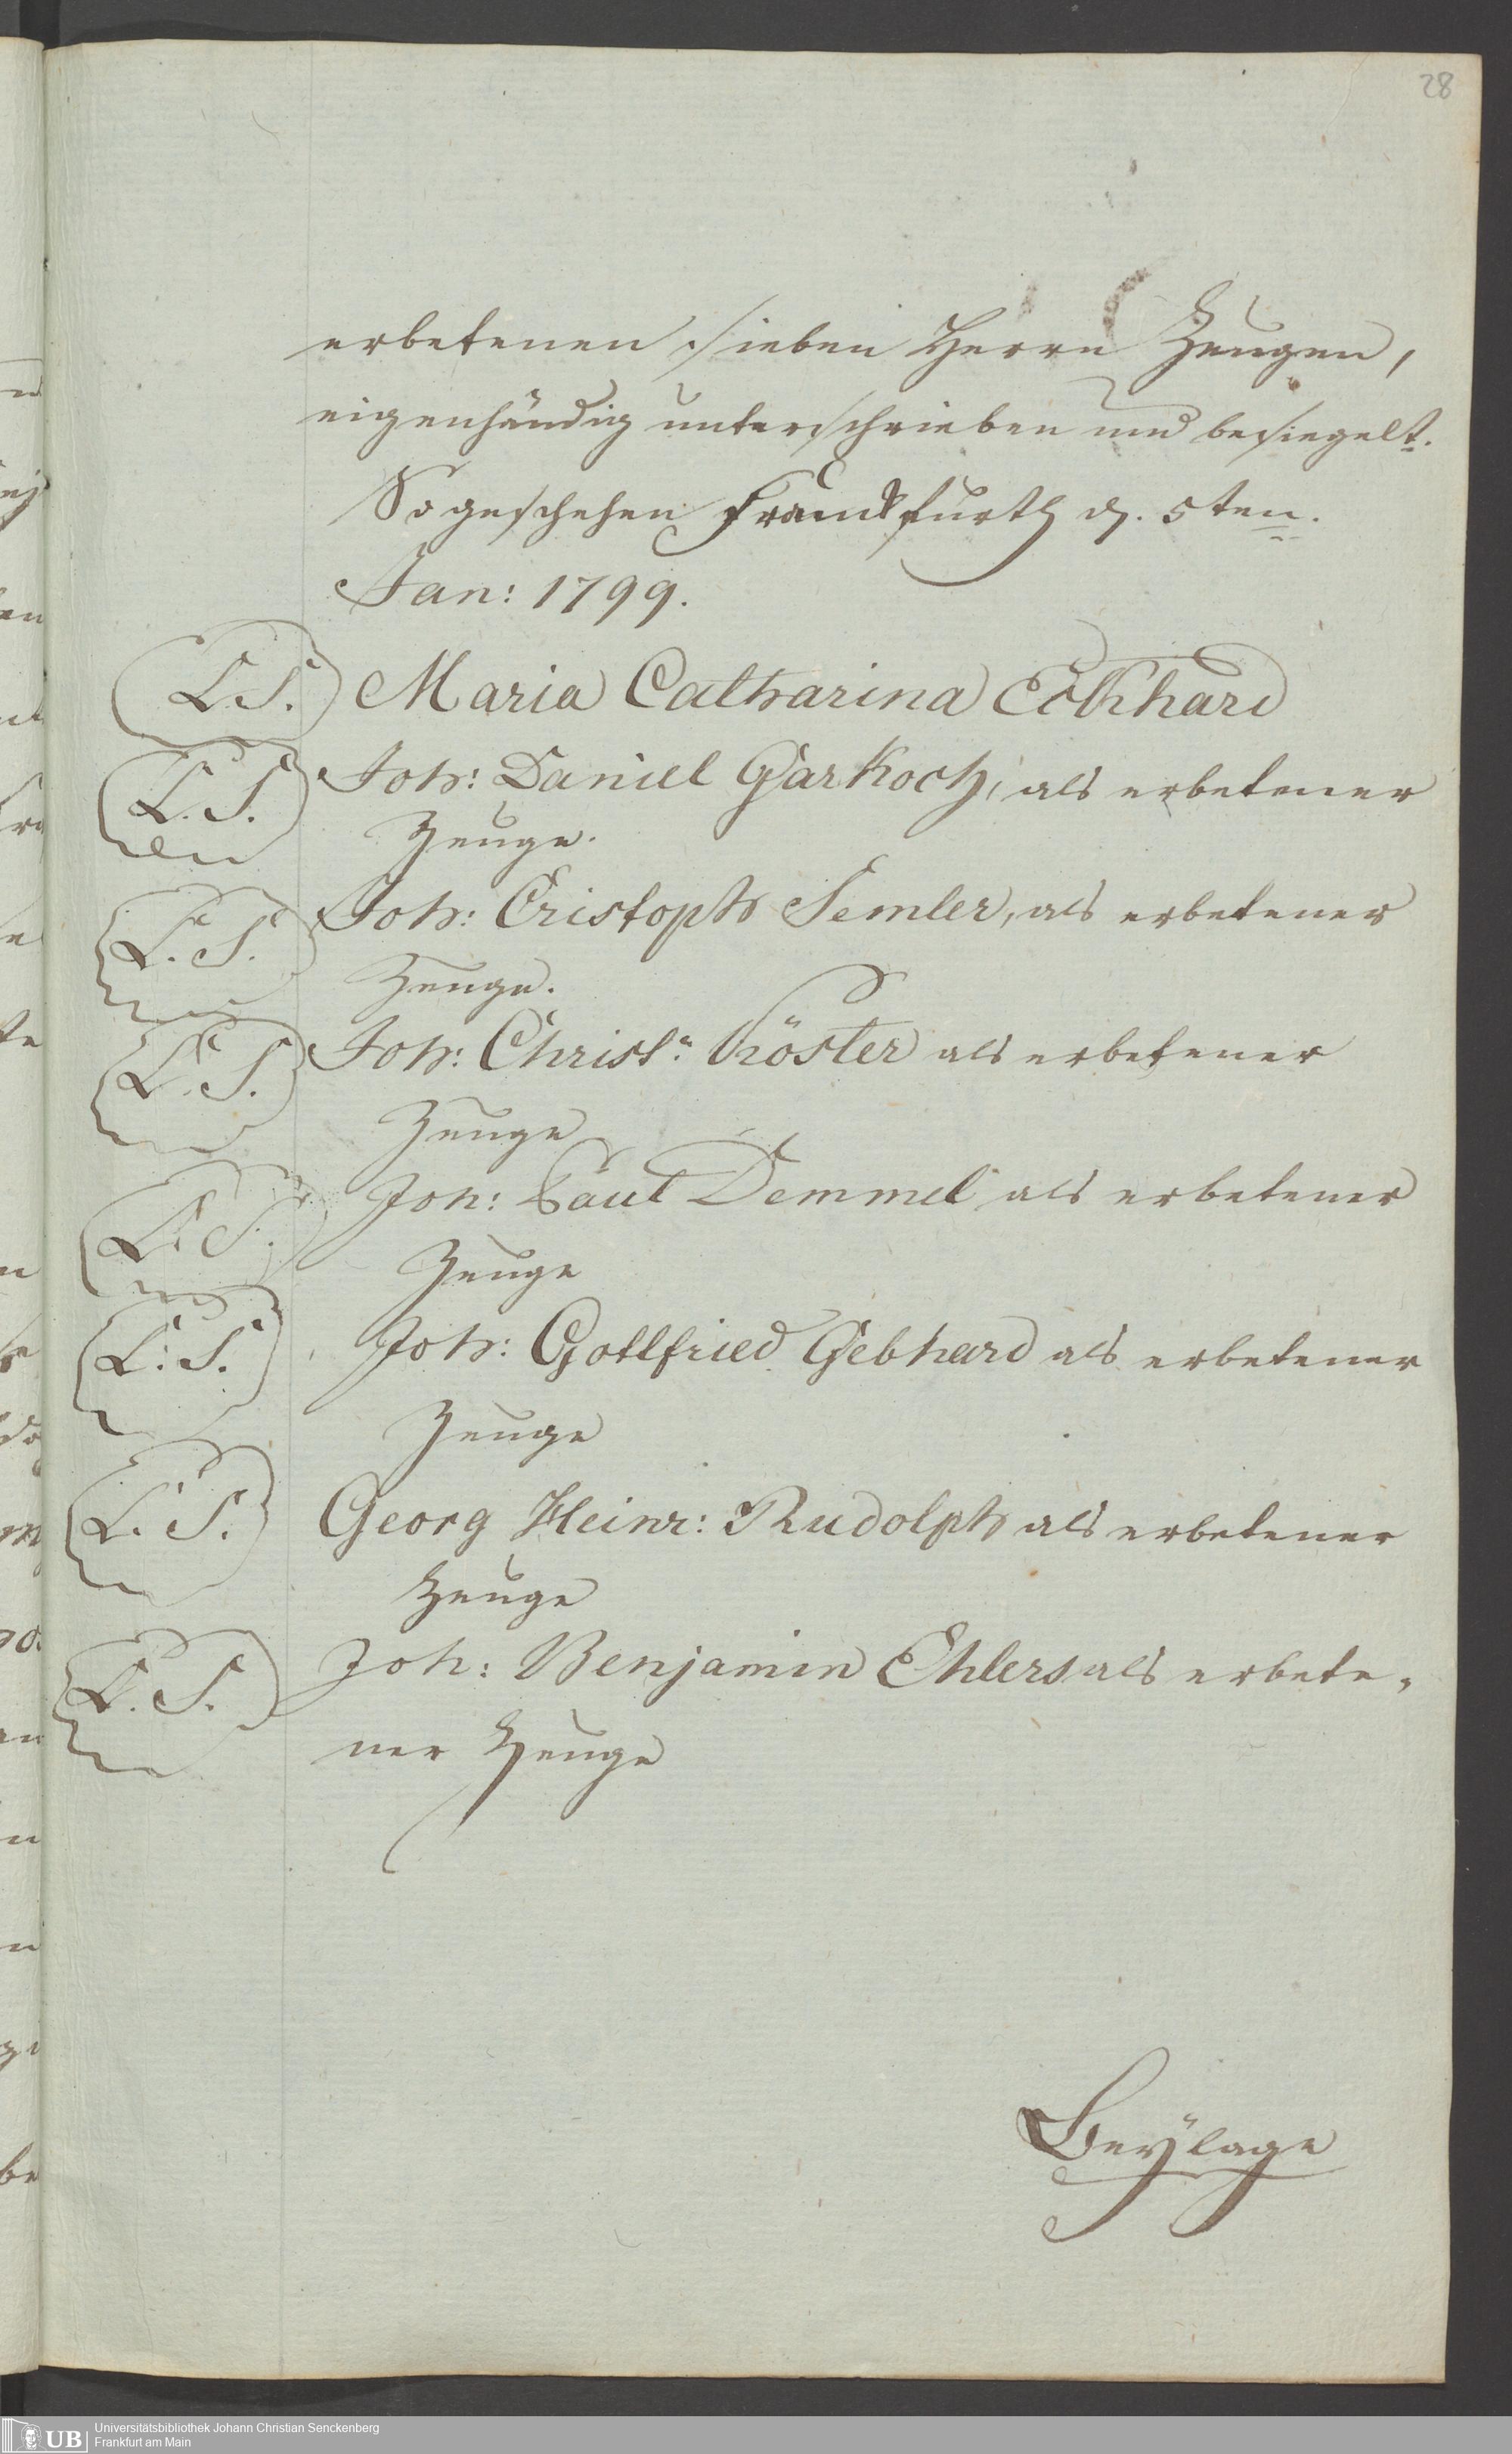 28
erbetenen sieben Herrn Zeugen,
eigenhändig unterschrieben und besiegelt.
So geschehen Franckfurth d. 5ten.
Jan: 1799.
L.S. Maria Catharina Eckhard
L.S. Joh: Daniel Garkoch, als erbetener
Zeuge.
L.S. Joh: Cristoph Semler, als erbetener
Zeuge.
L.S. Joh: Christ: Köster als erbetener
Zeuge
L.S. Joh: Paul Demmel als erbetener
Zeuge
L.S. Joh: Gottfried Gebhard als erbetener
Zeuge
L.S. Georg Heinr: Rudolph als erbetener
Zeuge
L.S. Joh: Benjamin Ehlers als erbete-
ner Zeuge
Beÿlage
UB Universitätsbibliothek Johann Christian Senckenberg
Frankfurt am Main